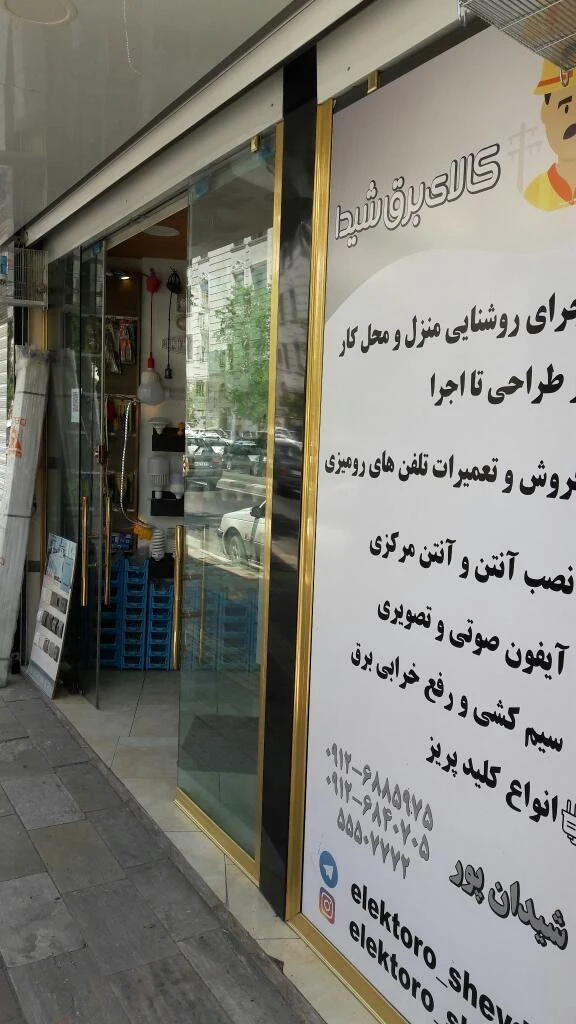 کالای برق شیدا
جرای روشنایی منزل و محل کار
طراحی تا اجرا
فروش و تعمیرات تلفن های رومیزی
نصب آنتن و آنتن مرکزی
آیفون صوتی و تصویری
سیم کشی و رفع خرابی برق
انواع کلید پریز
۰۹۱۲-۶۸۸۵۹۷۵
۰۹۱۲-۶۸۴۰۷۰۵
۵۵۵۰۷۷۷۲
شیدان پور
elektoro_shey
elektoro_s